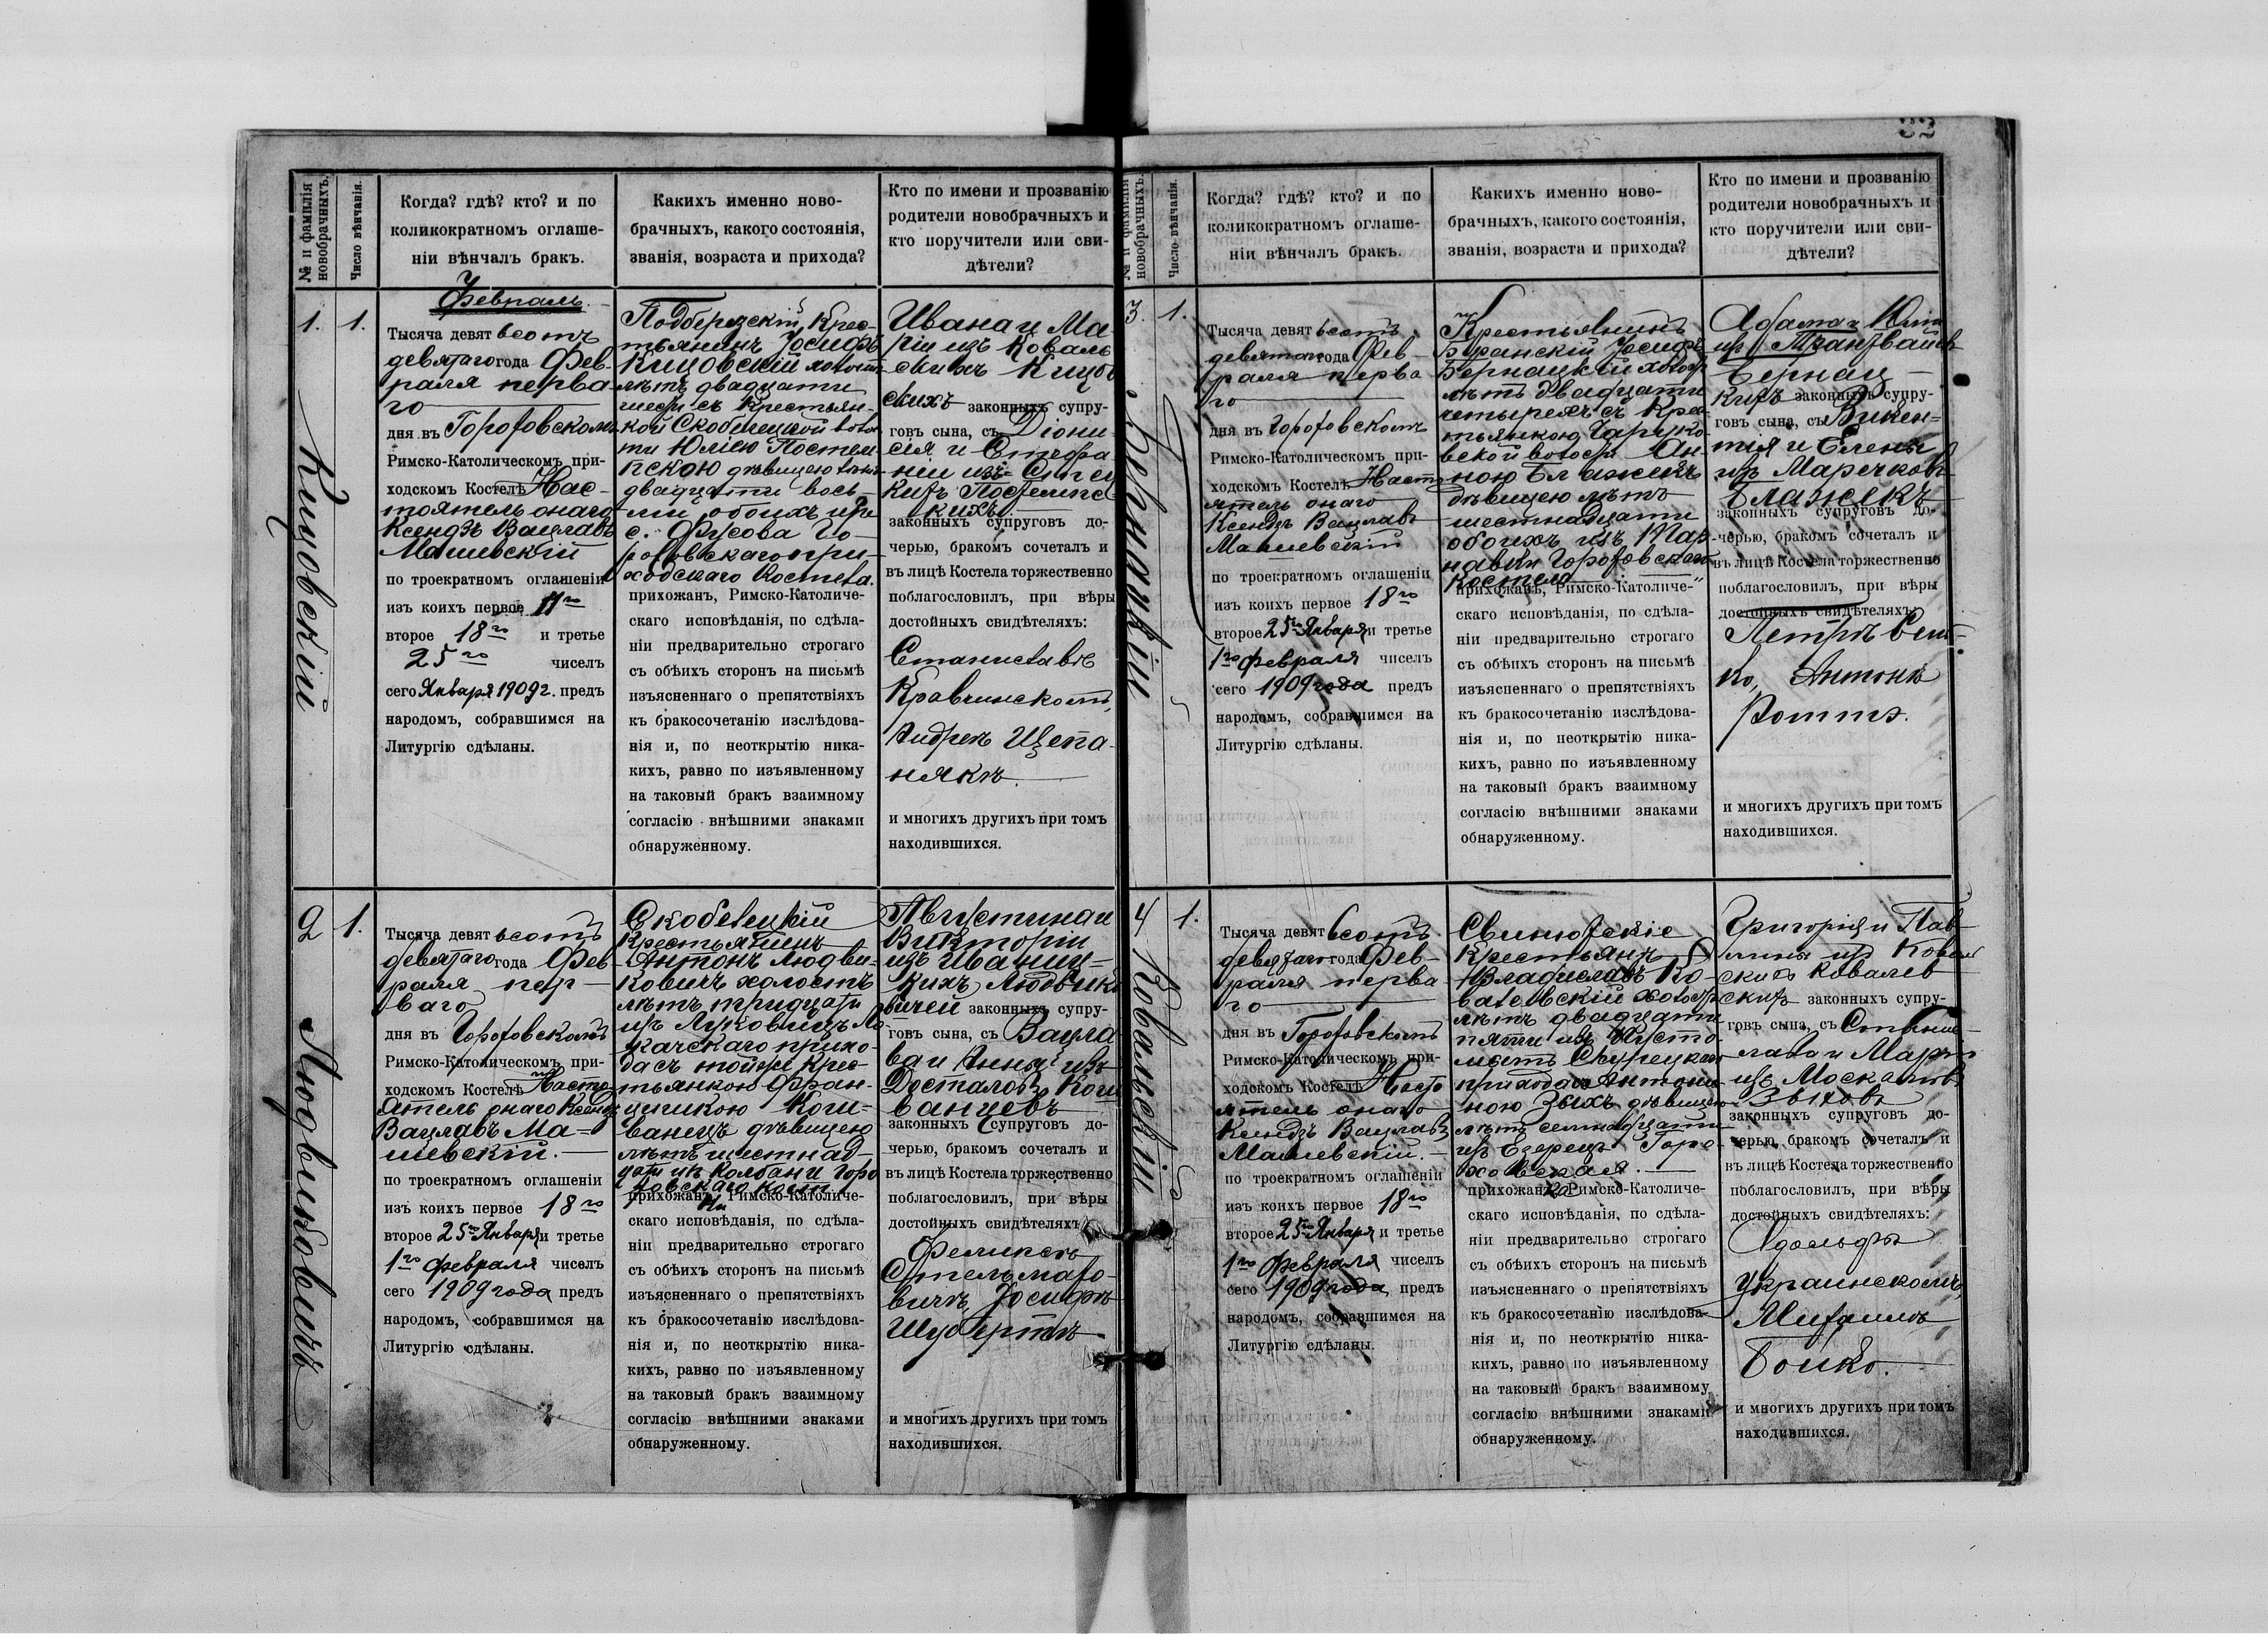 32
№ и фамилія новобрачныхъ.
Число вѣнчанія.
Когда? гдѣ? кто? и по
коликократномъ оглаше-
ніи вѣнчалъ бракъ.
Какихъ именно ново-
брачныхъ, какого состоянія,
званія, возраста и прихода?
Кто по имени и прозванію
родители новобрачныхъ и
кто поручители или сви-
дѣтели?
1.
Кицовскій
1.
Февраль.
Тысяча девятьсотъ
девятаго года Фев-
раля перва-
го
дня въ Гороховскомъ
Римско-Католическомъ при-
ходскомъ Костелѣ Нас-
тоятель онаго
Ксендзъ Вацлавъ
Машевскій
по троекратномъ оглашеніи
изъ коихъ первое 11го
второе 18го и третье
25го чиселъ
сего Января 1909г. предъ
народомъ, собравшимся на
Литургію сдѣланы.
Подберезскій Крес-
тьянинъ Іосифъ
Кицовскій холостъ
лѣтъ двадцати
шести съ крестьян-
кой Скобелецкой волос
ти Юліею Постем
пскою дѣвицею лѣтъ
двадцати вось-
ми обоихъ изъ
с. Фусова Го-
роховскаго при-
ходскаго Костела.
прихожанъ, Римско-Католиче-
скаго исповѣданія, по сдѣла-
ніи предварительно строгаго
съ обѣихъ сторонъ на письмѣ
изъясненнаго о препятствіяхъ
къ бракосочетанію изслѣдова-
нія и, по неоткрытію ника-
кихъ, равно по изъявленному
на таковый бракъ взаимному
согласію внѣшними знаками
обнаруженному.
Ивана и Ма-
ріи изъ Коваль
скихъ Кицов
скихъ законныхъ супру-
говъ сына, съ Діони-
сія и Стефа-
ніи изъ
Постемпс
кихъ
законныхъ супруговъ до-
черью, бракомъ сочеталъ и
въ лицѣ Костела торжественно
поблагословилъ, при вѣры
достойныхъ свидѣтеляхъ:
Станиславѣ
Кравчинскомъ,
Андреѣ Щепа-
някѣ.
и многихъ другихъ при томъ
находившихся.
2
Людвиковичъ
1.
Тысяча девятьсотъ
девятаго года Фев-
раля пер-
ваго
дня въ Гороховскомъ
Римско-Католическомъ при-
ходскомъ Костелѣ Насто-
ятель онаго Ксендзъ
Вацлавъ Ма-
шевскій.
по троекратномъ оглашеніи
изъ коихъ первое 18го
второе 25го Января и третье
1го февраля чиселъ
сего 1909 года предъ
народомъ, собравшимся на
Литургію сдѣланы.
Скобелецкій
Крестьянинъ
Антонъ Людви-
ковичъ холостъ
лѣтъ тридцати
изъ Луковицъ Ло
качскаго прихо-
да съ тойже крес-
тьянкою Фран-
цишкою Коши-
ванецъ дѣвицею
лѣтъ шестнад-
цати изъ Колбани Горо
ховскаго кост
прихожанъ, Римско-Католиче-
скаго исповѣданія, по сдѣла-
ніи предварительно строгаго
съ обѣихъ сторонъ на письмѣ
изъясненнаго о препятствіяхъ
къ бракосочетанію изслѣдова-
нія и, по неоткрытію ника-
кихъ, равно по изъявленному
на таковый бракъ взаимному
согласію внѣшними знаками
обнаруженному.
Августина и
Викторіи
изъ Иваниц-
кихъ Людвико
вичей законныхъ супру-
говъ сына, съ Вацла
ва и Анны изъ
Досталовъ Коши
ванцевъ
законныхъ супруговъ до-
черью, бракомъ сочеталъ и
въ лицѣ Костела торжественно
поблагословилъ, при вѣры
достойныхъ свидѣтеляхъ:
Феликсѣ
Стельмахо-
вичѣ, Іосифѣ
Шубертѣ
и многихъ другихъ при томъ
находившихся.
№ и фамилія новобрачныхъ.
Число вѣнчанія.
Когда? гдѣ? кто? и по
коликократномъ оглаше-
ніи вѣнчалъ бракъ.
Какихъ именно ново-
брачныхъ, какого состоянія,
званія, возраста и прихода?
Кто по имени и прозванію
родители новобрачныхъ и
кто поручители или сви-
дѣтели?
3.
Бернацкій
1.
Тысяча девятьсотъ
девятаго года Фев-
раля перва
го
дня въ Гороховскомъ
Римско-Католическомъ при-
ходскомъ Костелѣ Насто
ятель онаго
Ксендзъ Вацлавъ
Машевскій
по троекратномъ оглашеніи
изъ коихъ первое 18го
второе 25го Января и третье
1го февраля чиселъ
сего 1909 года предъ
народомъ, собравшимся на
Литургію сдѣланы.
Крестьянинъ
Іосифъ
Бернацкій холостъ
лѣтъ двадцати
четырехъ съ Кре-
тьянкою Чаруко
вской волости Ан-
ною Блажекъ
дѣвицею лѣтъ
шестнадцати
обоихъ изъ Мар-
Гороховскаго
Костела
прихожанъ, Римско-Католиче-
скаго исповѣданія, по сдѣла-
ніи предварительно строгаго
съ обѣихъ сторонъ на письмѣ
изъясненнаго о препятствіяхъ
къ бракосочетанію изслѣдова-
нія и, по неоткрытію ника-
кихъ, равно по изъявленному
на таковый бракъ взаимному
согласію внѣшними знаками
обнаруженному.
Адама и Юліи
изъ
Бернац-
кихъ законныхъ супру-
говъ сына, съ Викен-
тія и Елены
изъ Маречковъ
Блажекъ
законныхъ супруговъ до-
черью, бракомъ сочеталъ и
въ лицѣ Костела торжественно
поблагословилъ, при вѣры
достойныхъ свидѣтеляхъ:
Петрѣ Сень-
ко, Антонѣ
Роттъ.
и многихъ другихъ при томъ
находившихся.
4
Ковалевскій
1.
Тысяча девятьсотъ
девятаго года Фев-
раля перва
го
дня въ Гороховскомъ
Римско-Католическомъ при-
ходскомъ Костелѣ Насто
ятель онаго
Ксендзъ Вацлавъ
Машевскій.
по троекратномъ оглашеніи
изъ коихъ первое 18го
второе 25го Января и третье
1го февраля чиселъ
сего 1909 года, предъ
народомъ, собравшимся на
Литургію сдѣланы.
Свинюхскіе
Крестьяне
Владиславъ Ко-
валевскій холостъ
лѣтъ двадцати
пяти изъ Пусто-
мытъ Скурецкаго
прихода съ Антони-
ною Зыхъ дѣвицею
лѣтъ семнадцати
изъ Езерецъ Горо-
ховская.
прихожанъ, Римско-Католиче-
скаго исповѣданія, по сдѣла-
ніи предварительно строгаго
съ обѣихъ сторонъ на письмѣ
изъясненнаго о препятствіяхъ
къ бракосочетанію изслѣдова-
нія и, по неоткрытію ника-
кихъ, равно по изъявленному
на таковый бракъ взаимному
согласію внѣшними знаками
обнаруженному.
Григорія и Пав-
лины изъ Коваль
скихъ Ковалев
скихъ законныхъ супру-
говъ сына, съ Станис-
лава и Маріи
изъ Москалевъ
Зыховъ
законныхъ супруговъ до-
черью, бракомъ сочеталъ и
въ лицѣ Костела торжественно
поблагословилъ, при вѣры
достойныхъ свидѣтеляхъ:
Адольфѣ
Украинскомъ,
Михаилѣ
Бойко.
и многихъ другихъ при томъ
находившихся.